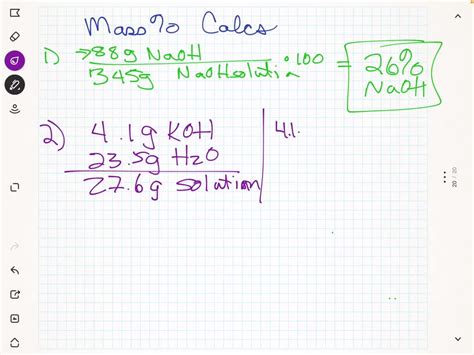 Mass% Calcs
1) → 88g NaOH
345g NaOH solution • 100 = 26% NaOH
2) 4.1g KOH | 4.1
23.5g H2O
27.6g solution
20 / 20